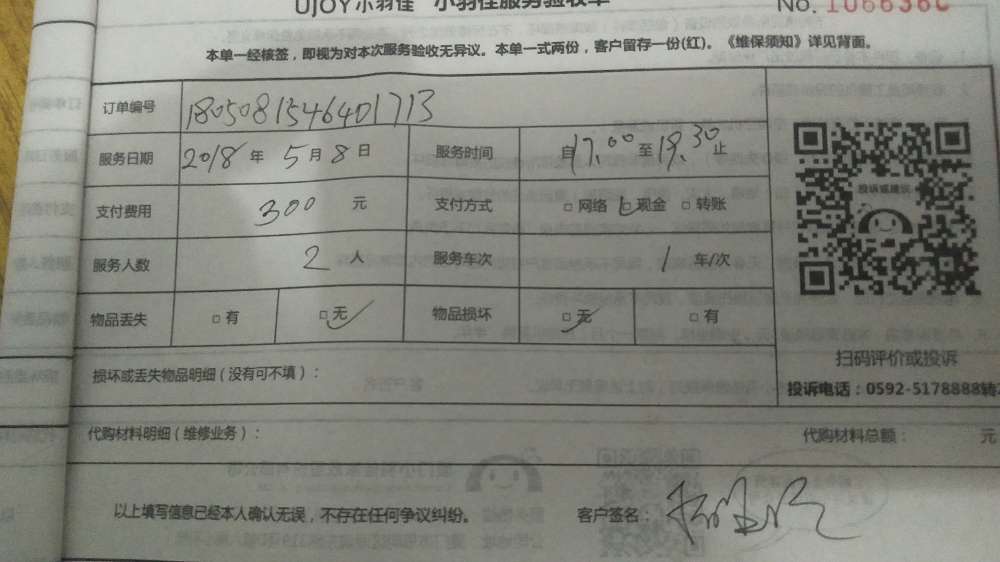 UJOY小羽佳 小羽佳服务验收单 No. 106636C
本单一经核签，即视为对本次服务验收无异议。本单一式两份，客户留存一份(红)。《维保须知》详见背面。
订单编号 1805081546401713
服务日期 2018年5月8日 服务时间 自17.00至19.30止
支付费用 300元 支付方式 □网络 □现金 □转账
服务人数 2人 服务车次 1车/次
物品丢失 □有 □无 物品损坏 □无 □有
投诉或建议
扫码评价或投诉
投诉电话：0592-5178888转
损坏或丢失物品明细（没有可不填）：
代购材料明细（维修业务）： 代购材料总额： 元
以上填写信息已经本人确认无误，不存在任何争议纠纷。 客户签名：